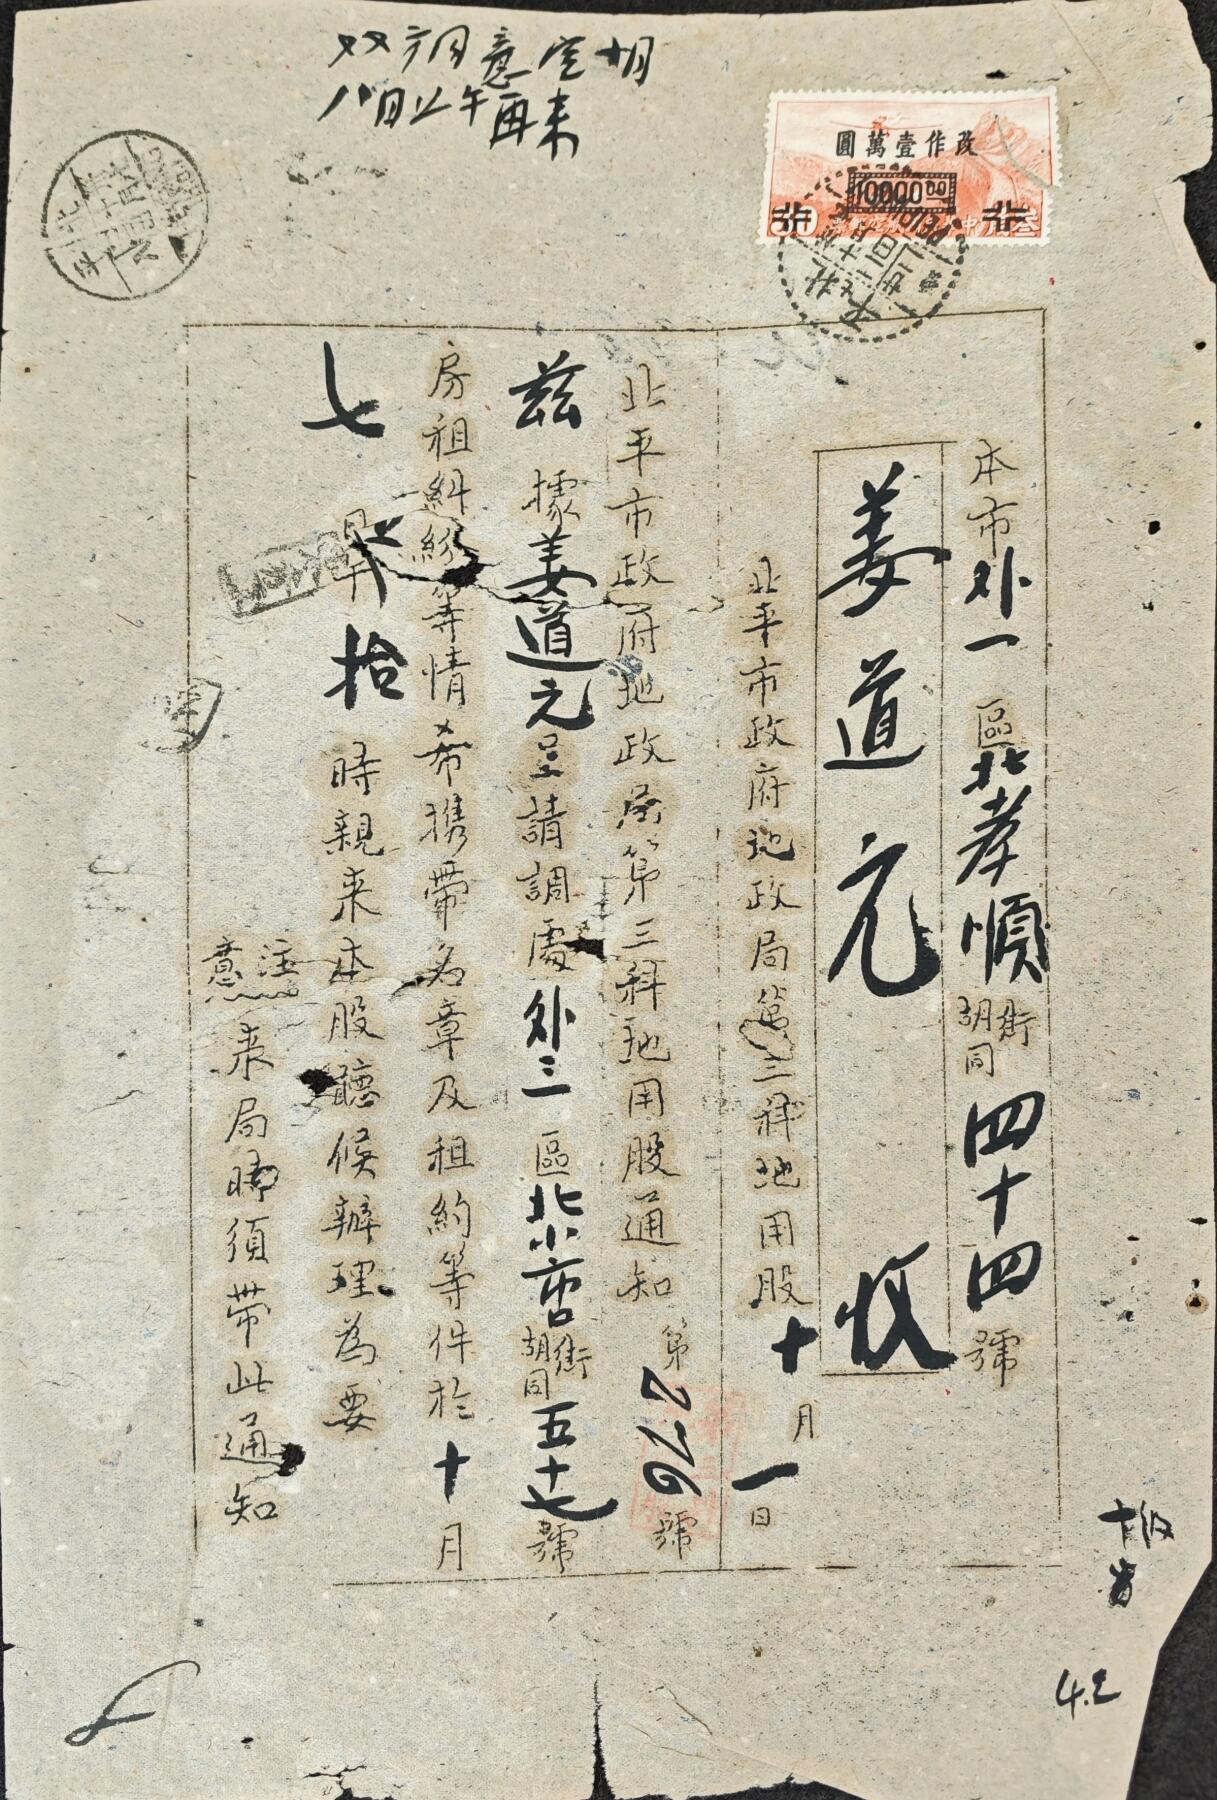 双方同意定十月
八日上午再来
改作壹萬圓
10000.00
本市外一區北孝順街胡同四十四號
姜道元 收
北平市政府地政局第三科地用股十月一日
北平市政府地政局第三科地用股通知 第276號
茲據姜道元呈請調處外三區北小市口街胡同五十七號
房租糾紛等情希携帶名章及租約等件於十月
七日上午拾時親来本股聽候辦理為要
注意 来局時須带此通知
4.2